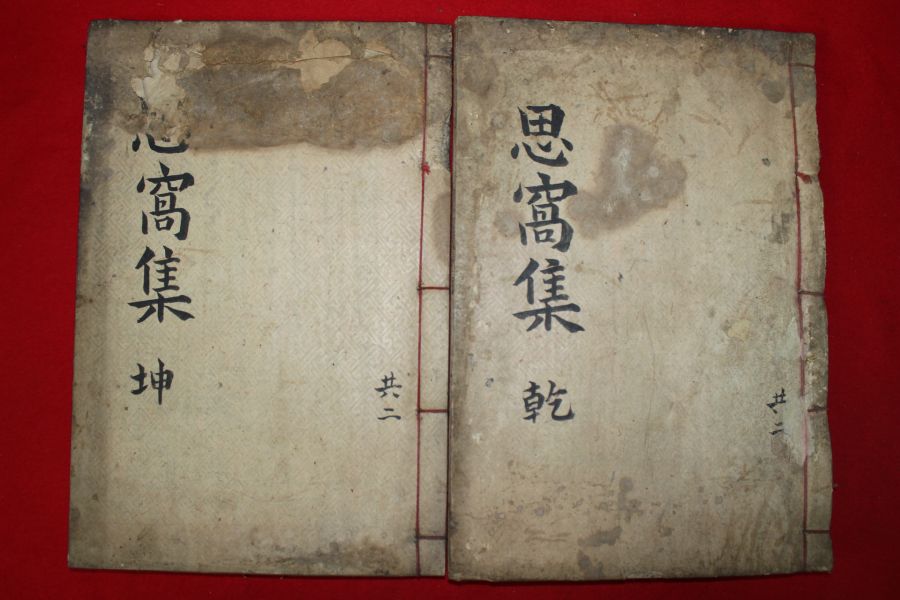 思窩集 乾
共二
思窩集 坤
共二